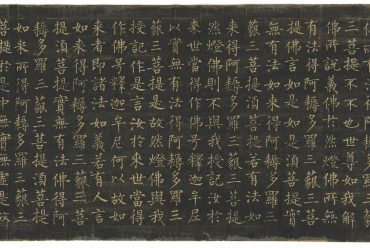 三菩提不不也世尊如我解
佛所說義佛於然燈佛所無
有法得阿耨多羅三藐三菩
提佛言如是如是須菩提實
無有法如來得阿耨多羅三
藐三菩提須菩提若有法如
來得阿耨多羅三藐三菩提
然燈佛則不與我授記汝於
來世當得作佛號釋迦牟尼
以實無有法得阿耨多羅三
藐三菩提是故然燈佛與我
授記作是言汝於來世當得
作佛號釋迦牟尼何以故如
來者即諸法如義若有人言
如來得阿耨多羅三藐三菩
提須菩提實無有法佛得阿
耨多羅三藐三菩提須菩提
如來所得阿耨多羅三藐三
菩提於是中無實無虛是故